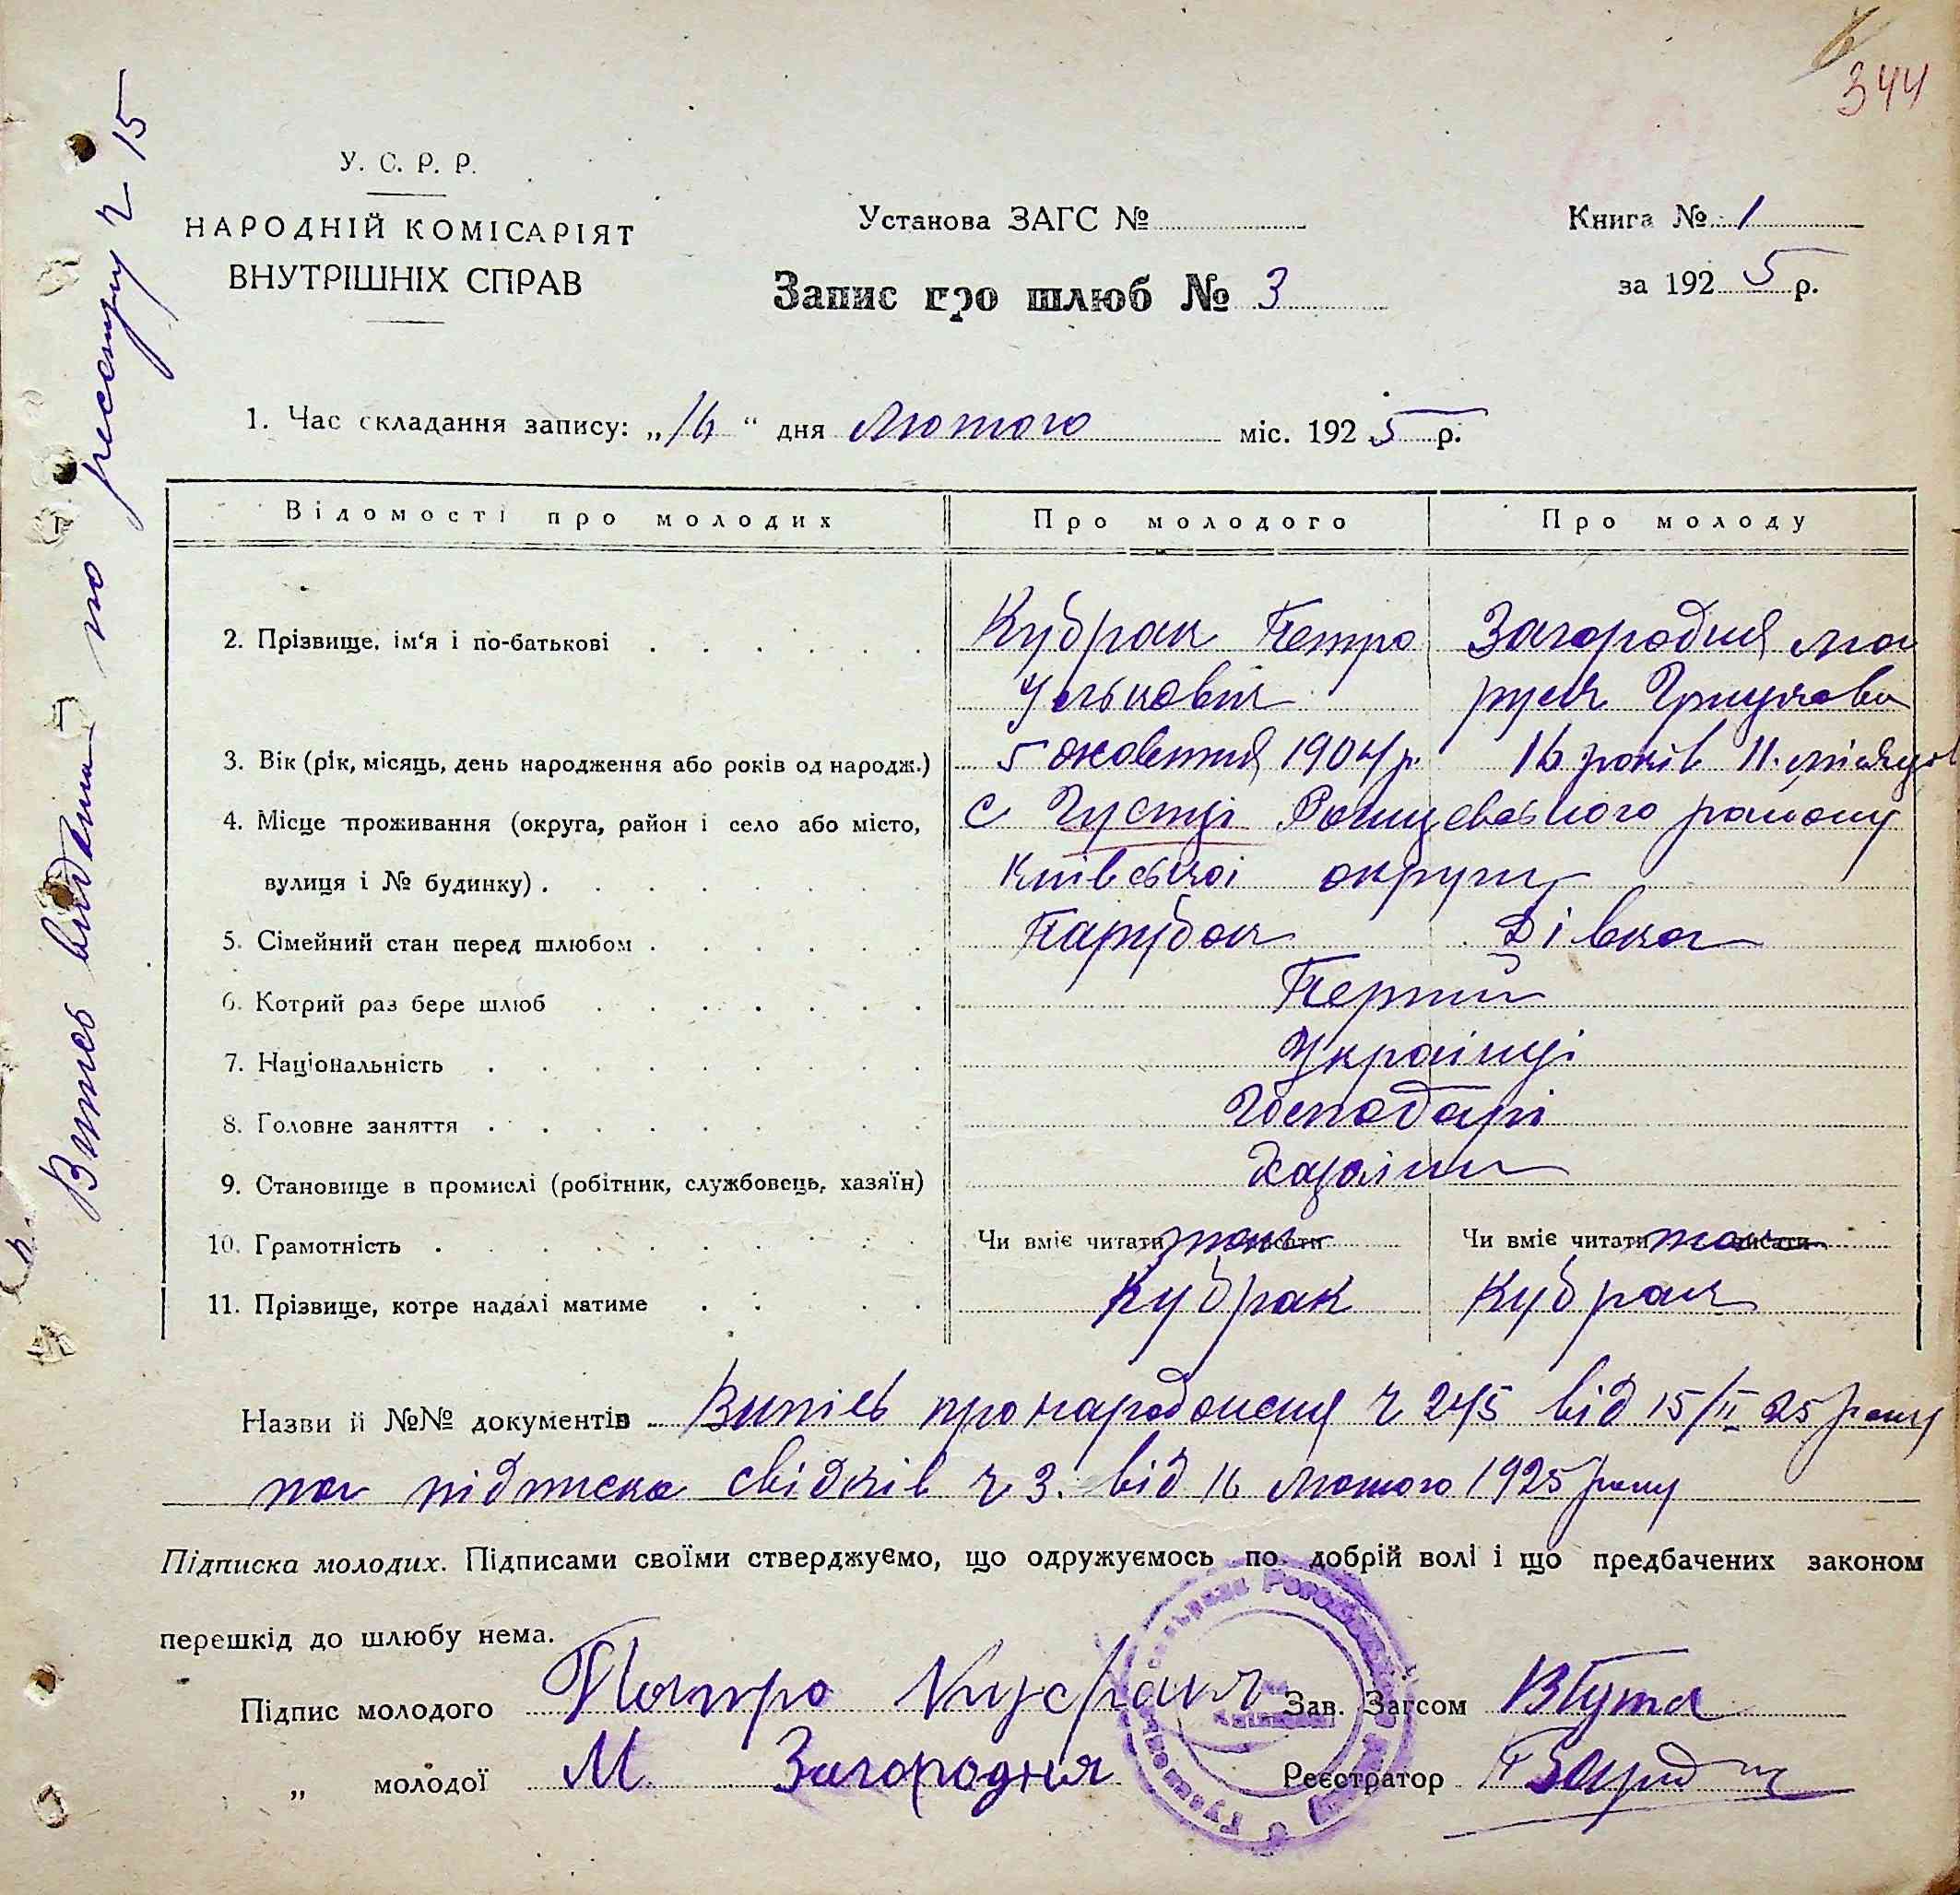 344
У. С. Р. Р.
НАРОДНІЙ КОМІСАРІЯТ
ВНУТРІШНІХ СПРАВ
Установа ЗАГС №
Запис про шлюб № 3
Книга № 1
за 1925 р.
Випись видана по реєстру ч 15
1. Час складання запису: „16“ дня Лютого міс. 1925 р.
Відомості про молодих Про молодого Про молоду
2. Прізвище, ім‘я і по-батькові Кубрак Петро Загородня Ма
руся Грицькова
3. Вік (рік, місяць, день народження або років од народж.) 5 жовтня 1904 р. 16 років 11 місяців
4. Місце проживання (округа, район і село або місто, с Гусінці Рогнівського району
вулиця і № будинку). Київської округи
5. Сімейний стан перед шлюбом Парубок Дівка
6. Котрий раз бере шлюб Перший
7. Національність Українці
8. Головне заняття Господарі
9. Становище в промислі (робітник, службовець, хазяїн) Хазяіни
10. Грамотність Чи вміє читати писати Чи вміє читати писати
11. Прізвище, котре надалі матиме Кубрак Кубрак
Назви й №№ документів Випісь про народження ч 245 від 15/II 25 року
та підписка свідків ч 3. від 16 Лютого 1925 року
Підписка молодих. Підписами своїми стверджуємо, що одружуємось по добрій волі і що предбачених законом
перешкід до шлюбу нема.
Підпис молодого Петро Кубрак Зав. Загсом
„ молодої М Загородня Реєстратор